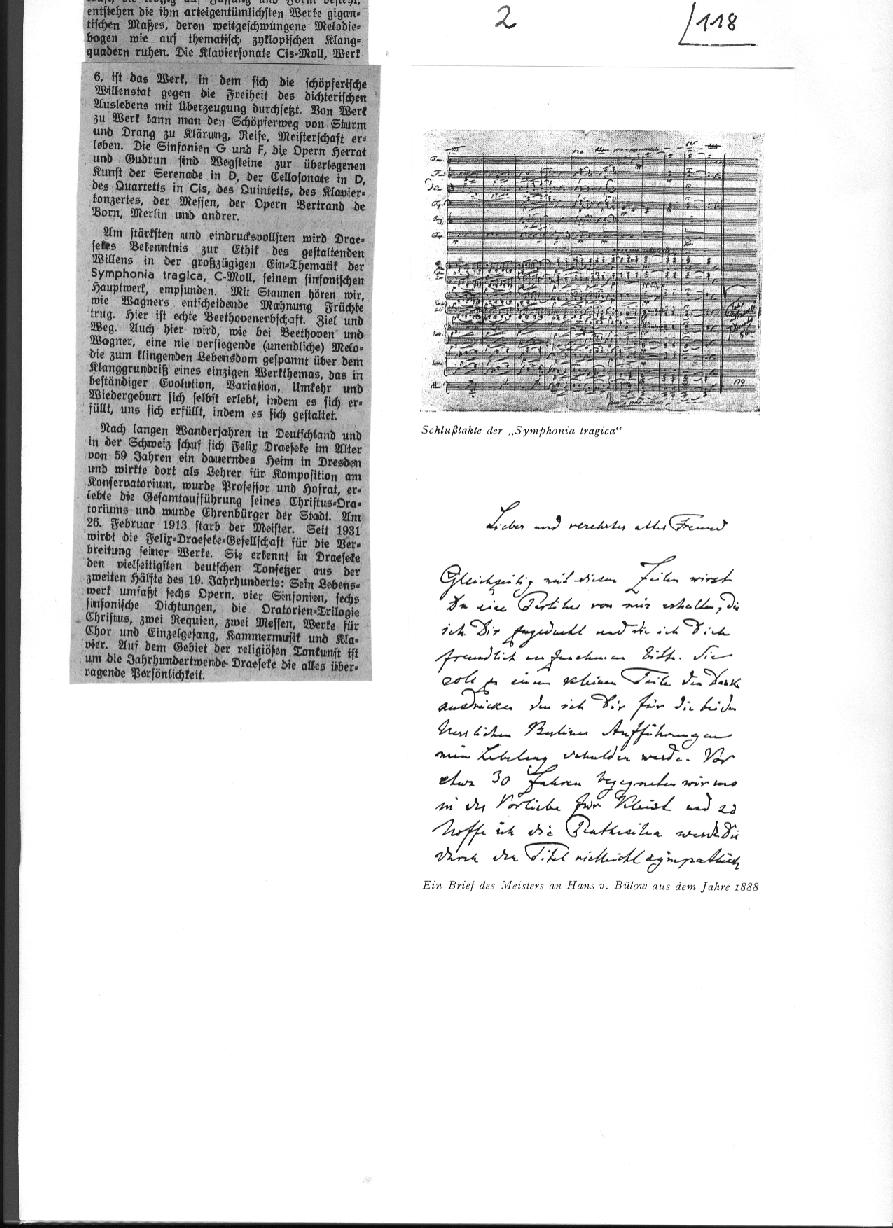 2
118
entstehen die ihm arteigentümlichsten Werke gigan-
tischen Maßes, deren weitgeschwungene Melodie-
bogen wie auf thematisch zyklopischen Klang-
quadern ruhen. Die Klaviersonate Cis-Moll, Werk
6, ist das Werk, in dem sich die schöpferische
Willenstat gegen die Freiheit des dichterischen
Auslebens mit Überzeugung durchsetzt. Von Werk
zu Werk kann man den Schöpferweg von Sturm
und Drang zu Klärung, Reife, Meisterschaft er-
leben. Die Sinfonien G und F, die Opern Herrat
und Gudrun sind Wegsteine zur überlegenen
Kunst der Serenade in D, der Cellosonate in D,
des Quartetts in Cis, des Quintetts, des Klavier-
konzertes, der Messen, der Opern Bertrand de
Born, Merlin und andrer.
Am stärksten und eindrucksvollsten wird Drae-
sekes Bekenntnis zur Ethik des gestaltenden
Willens in der großzügigen Ein-Thematik der
Symphonia tragica, C-Moll, seinem sinfonischen
Hauptwerk, empfunden. Mit Staunen hören wir,
wie Wagners entscheidende Mahnung Früchte
trug. Hier ist echte Beethovenerbschaft. Ziel und
Weg. Auch hier wird, wie bei Beethoven und
Wagner, eine nie versiegende (unendliche) Melo-
die zum klingenden Lebensdom gespannt über dem
Klanggrundriß eines einzigen Werkthemas, das in
beständiger Evolution, Variation, Umkehr und
Wiedergeburt sich selbst erlebt, indem es sich er-
füllt, uns sich erfüllt, indem es sich gestaltet.
Nach langen Wanderjahren in Deutschland und
in der Schweiz schuf sich Felix Draeseke im Alter
von 59 Jahren ein dauerndes Heim in Dresden
und wirkte dort als Lehrer für Komposition am
Konservatorium, wurde Professor und Hofrat, er-
lebte die Gesamtaufführung seines Christus-Ora-
toriums und wurde Ehrenbürger der Stadt. Am
26. Februar 1913 starb der Meister. Seit 1931
wirbt die Felix-Draeseke-Gesellschaft für die Ver-
breitung seiner Werke. Sie erkennt in Draeseke
den vielseitigsten deutschen Tonsetzer aus der
zweiten Hälfte des 19. Jahrhunderts: Sein Lebens-
werk umfaßt sechs Opern, vier Sinfonien, sechs
sinfonische Dichtungen, die Oratorien-Trilogie
Christus, zwei Requien, zwei Messen, Werke für
Chor und Einzelgesang, Kammermusik und Kla-
vier. Auf dem Gebiet der religiösen Tonkunst ist
um die Jahrhundertwende Draeseke die alles über-
ragende Persönlichkeit.
Schlußtakte der „Symphonia tragica“
Lieber und verehrter alter Freund
Gleichzeitig mit diesen Zeilen wirst
Du eine Partitur von mir erhalten, die
ich Dir zugedacht und die ich Dich
freundlich anzunehmen bitte. Sie
soll zu einem kleinen Teile den Dank
ausdrücken den ich Dir für die beiden
herrlichen Berliner Aufführungen
mein Lebelang schulden werde. Vor
etwa 30 Jahren begegneten wir uns
in der Vorliebe für Kleist und so
hoffe ich die Penthesilea werde Dir
durch den Titel vielleicht sympathisch
Ein Brief des Meisters an Hans v. Bülow aus dem Jahre 1888